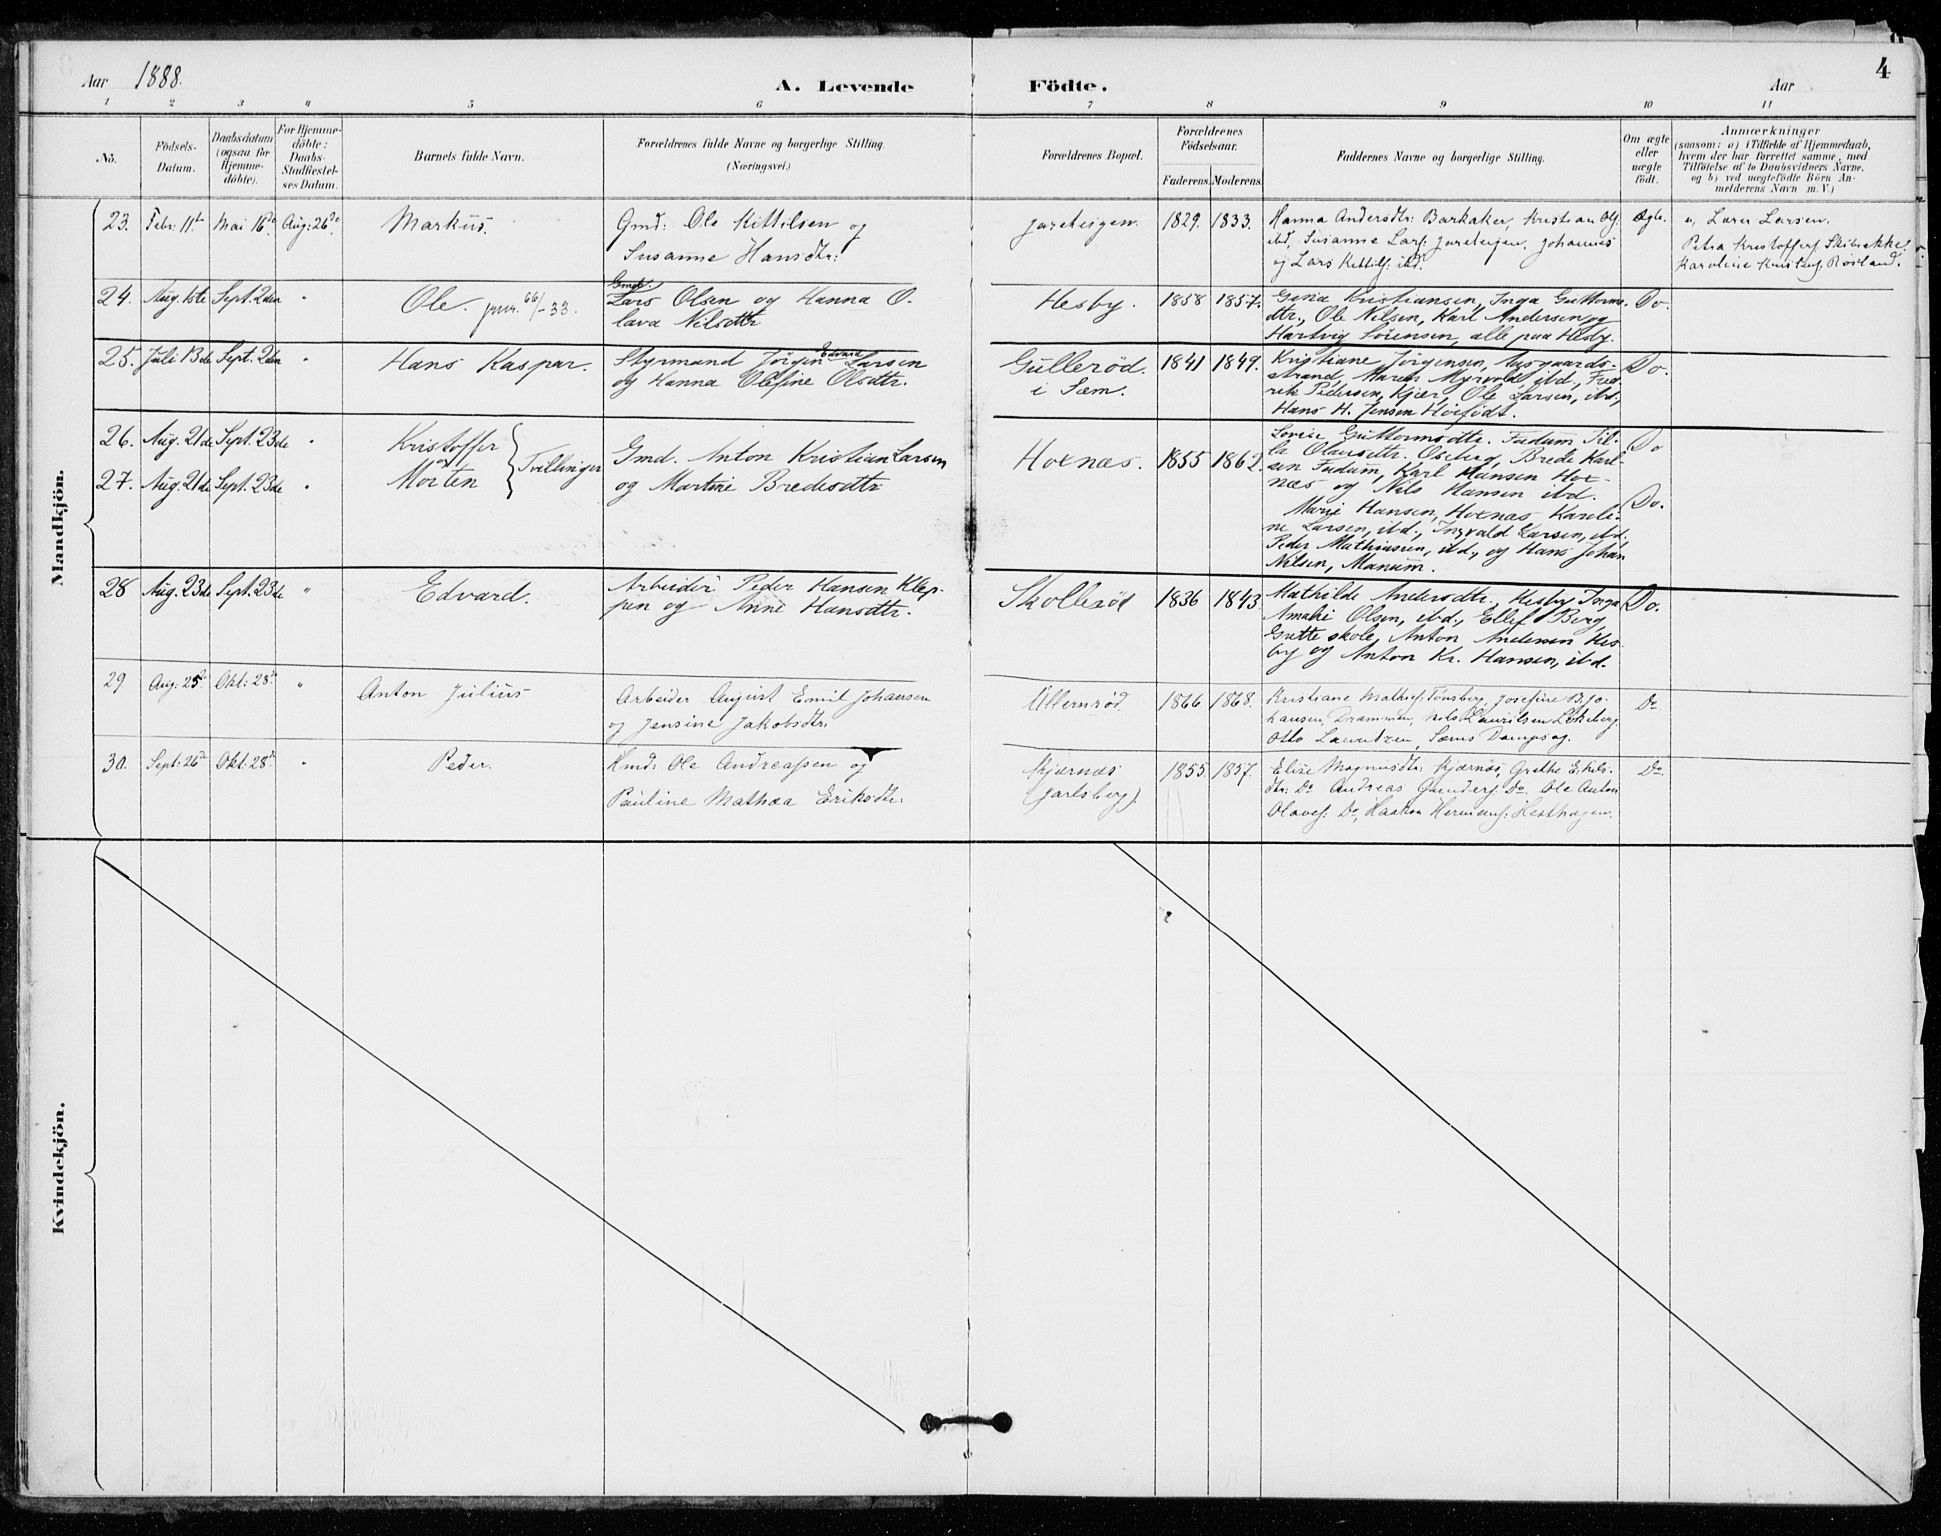 4
Aar 1888.
A. Levende Födte.
Aar
1 2 3 4 5 6 7 8 9 10 11
No.
Födsels-
Datum.
Daabsdatum
(ogsaa for
Hjemme-
döbte).
For Hjemme-
döbte:
Daabs-
Stadfæstel-
ses Datum.
Barnets fulde Navn.
Forældrenes fulde Navne og borgerlige Stilling.
(Næringsvei.)
Forældrenes Bopæl.
Forældrenes
Födselsaar.
Faderens. Moderens.
Faddernes Navne og borgerlige Stilling.
Om ægte
eller
uægte
födt.
Anmærkninger
(saasom: a) i Tilfælde af Hjemmedaab,
hvem der har forrettet samme, med
Tilföielse af to Daabsvidners Navne,
og b) ved uægtefödte Börn An-
melderens Navn m. V.)
Mandkjön.
23. Febr: 11te Mai 16de Aug: 26de Markus.
Gmd: Ole Kittilsen og
Susanne Hansdtr:
Jareteigen. 1829. 1833.
Hanna Andersdtr: Barkaker, Kristian Ols:
ibd, Susanne Lars: Jareteigen, Johannes
og Lars Kittils: ibd.
Ægte.
a, Larer Larsen.
Petra Kristoffers: Skibrekke.
Karoline Røsland.
24. Aug. 1ste Sept. 2den " Ole. 66/-33.
Gmd.
Lars Olsen og Hanna O-
lava Nilsdtr
Hesby. 1858 1857.
Gina Kristiansen, Inga Guttorms-
dtr., Ole Nilsen, Karl Andersen og
Hartvig Sørensen, alle paa Hesby.
Do.
25. Juli 13de Sept. 2den " Hans Kaspar.
Edvard
Styrmand Jørgen Larsen
og Hanna Olefine Olsdtr.
Gullerød
i Sem.
1841 1849.
Kristiane Jörgensen, Aasgaard-
strand, Maren Myrvold ibd., Fred-
rik Pedersen, Kjær, Ole Larsen, ibd,
Hans H. Jensen Hoifödt.
Do.
26. Aug. 21de Sept. 23de " Kristoffer
og
27. Aug. 21de Sept. 23de " Morten
Tvillinger
Gmd. Anton Kristian Larsen
og Martine Bredesdtr
Hoxnæs. 1855 1862.
Lovise Guttormsdtr. Fadum Til-
la Olausdtr. Oseberg, Brede Karl-
sen Fadum, Karl Hansen Hox-
næs og Nils Hansen ibd.
Do
Marie Hansen, Hoxnæs Karoli-
ne Larsen, ibd., Ingvald Larsen, ibd.
Peder Mathiassen, ibd., og Hans Johan
Nilsen, Manum.
Do.
28 Aug. 23de Sept. 23de " Edvard.
Arbeider Peder Hansen Klep-
pen og Anne Hansdtr.
Skollerød 1836 1843.
Mathilde Andersdtr. Hesby Inga
Amalie Olsen, ibd., Ellef Berg,
Gretteskole, Anton Andersen Hes-
by og Anton Kr. Hansen, ibd.
Do.
29 Aug: 25de Okt: 28de " Anton Julius
Arbeider August Emil Johansen
og Jensine Jakobsdtr.
Ullernrød. 1866 1868.
Kristiane Mathis: Tønsberg, Josefine B. Jo-
hansen, Drammen, Nils Lauritsen
Otto Lauritzen, Sems Dampsag.
Do.
30. Sept: 26de Okt: 28de " Peder.
Hmd: Ole Andreassen og
Pauline Mathea Eriksdtr.
Kjærnæs
(Jarlsberg).
1855. 1857.
Elise Magnusdtr: Kjærnæs, Grethe Eriks-
dtr: Do Andreas Gunders: Do. Ole Anton
Olaves: Do, Haakon Hermans: Hesthagen.
Do.
Kvindekjön.